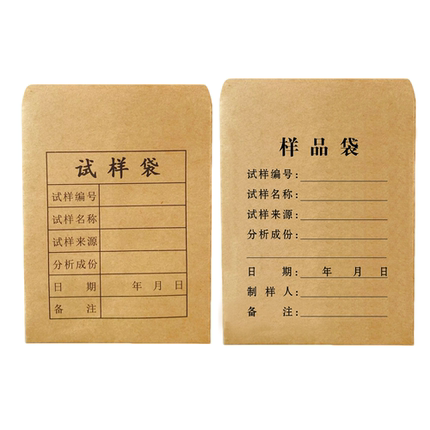 试样袋
试样编号
试样名称
试样来源
分析成份
日 期 年 月 日
备 注
样品袋
试样编号:
试样名称:
试样来源:
分析成份:
日 期: 年 月 日
制样人:
备 注: